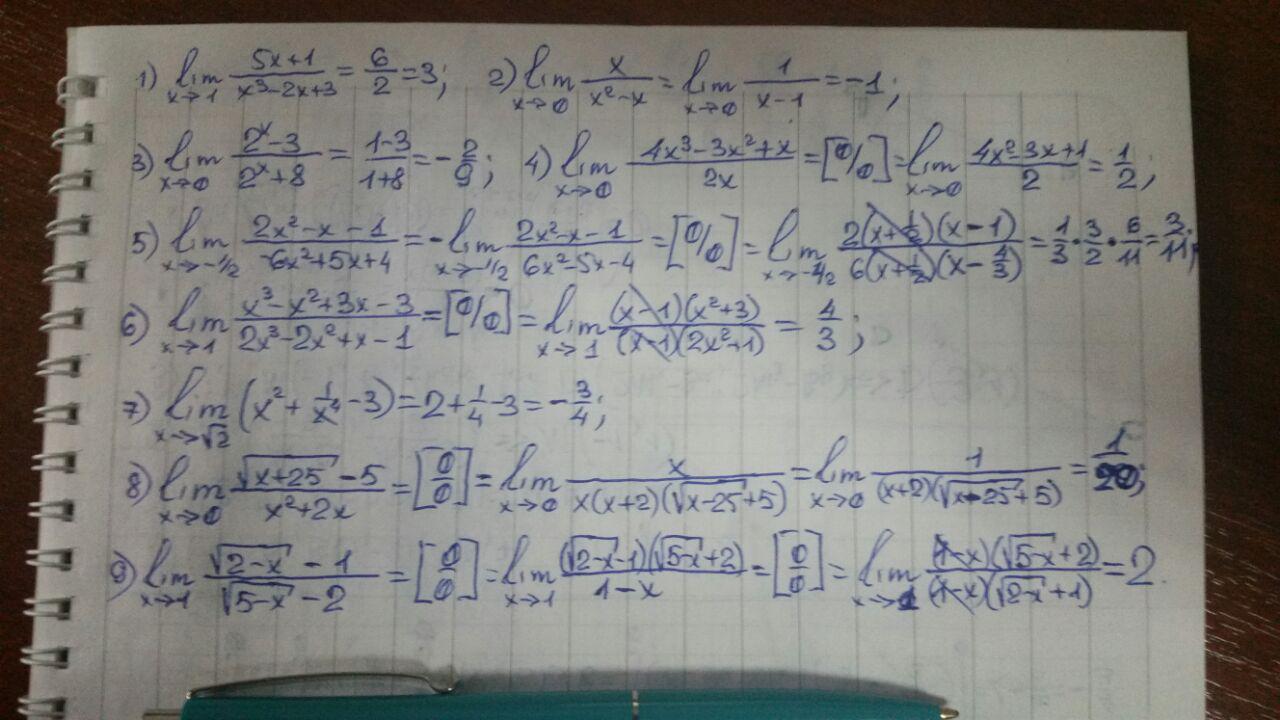 1) lim x→1 (5x+1)/(x³-2x+3) = 6/2 = 3; 2) lim x→0 x/(x²-x) = lim x→0 1/(x-1) = -1;
3) lim x→0 (2ˣ-3)/(2ˣ+8) = (1-3)/(1+8) = -2/9; 4) lim x→0 (4x³-3x²+x)/(2x) = [0/0] = lim x→0 (4x²-3x+1)/2 = 1/2;
5) lim x→-1/2 (2x²-x-1)/(-6x²+5x+4) = -lim x→-1/2 (2x²-x-1)/(6x²-5x-4) = [0/0] = lim x→-1/2 (2(x+1/2)(x-1))/(6(x+1/2)(x-4/3)) = 1/3·3/2·6/11 = 3/11;
6) lim x→1 (x³-x²+3x-3)/(2x³-2x²+x-1) = [0/0] = lim x→1 ((x-1)(x²+3))/((x-1)(2x²+1)) = 4/3;
7) lim x→√2 (x²+1/x⁴-3) = 2+1/4-3 = -3/4;
8) lim x→0 (√(x+25)-5)/(x²+2x) = [0/0] = lim x→0 x/(x(x+2)(√(x-25)+5)) = lim x→0 1/((x+2)(√(x-25)+5)) = 1/20;
9) lim x→1 (√(2-x)-1)/(√(5-x)-2) = [0/0] = lim x→1 ((√(2-x)-1)(√(5-x)+2))/(1-x) = [0/0] = lim x→1 ((1-x)(√(5-x)+2))/((1-x)(√(2-x)+1)) = 2.